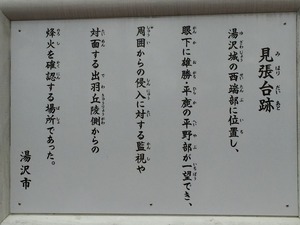 見張台跡
湯沢城の西端部に位置し、
眼下に雄勝・平鹿の平野部が一望でき、
周囲からの侵入に対する監視や
対面する出羽丘陵側からの
烽火を確認する場所であった。
湯沢市